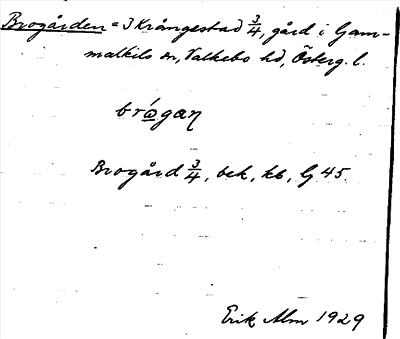 Brogården = 3 Krångestad 3/4, gård i Gam-
malkils sn, Valkebo hd, Österg. l.
brǿgaƞ
Brogård 3/4, bek, kb, G 45.
Erik Alm 1929